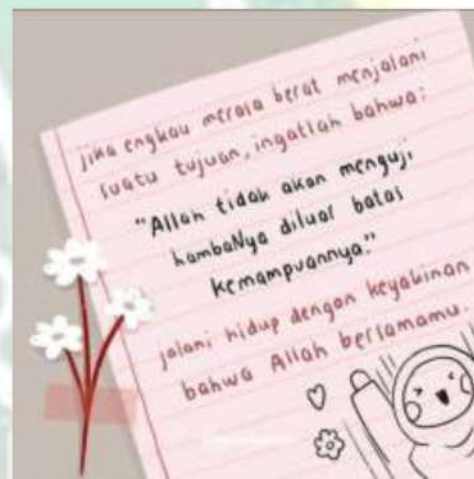 jika engkau merasa berat menjalani
suatu tujuan, ingatlah bahwa:
"Allah tidak akan menguji
hambaNya diluar batas
kemampuannya."
jalani hidup dengan keyakinan
bahwa Allah bersamamu.